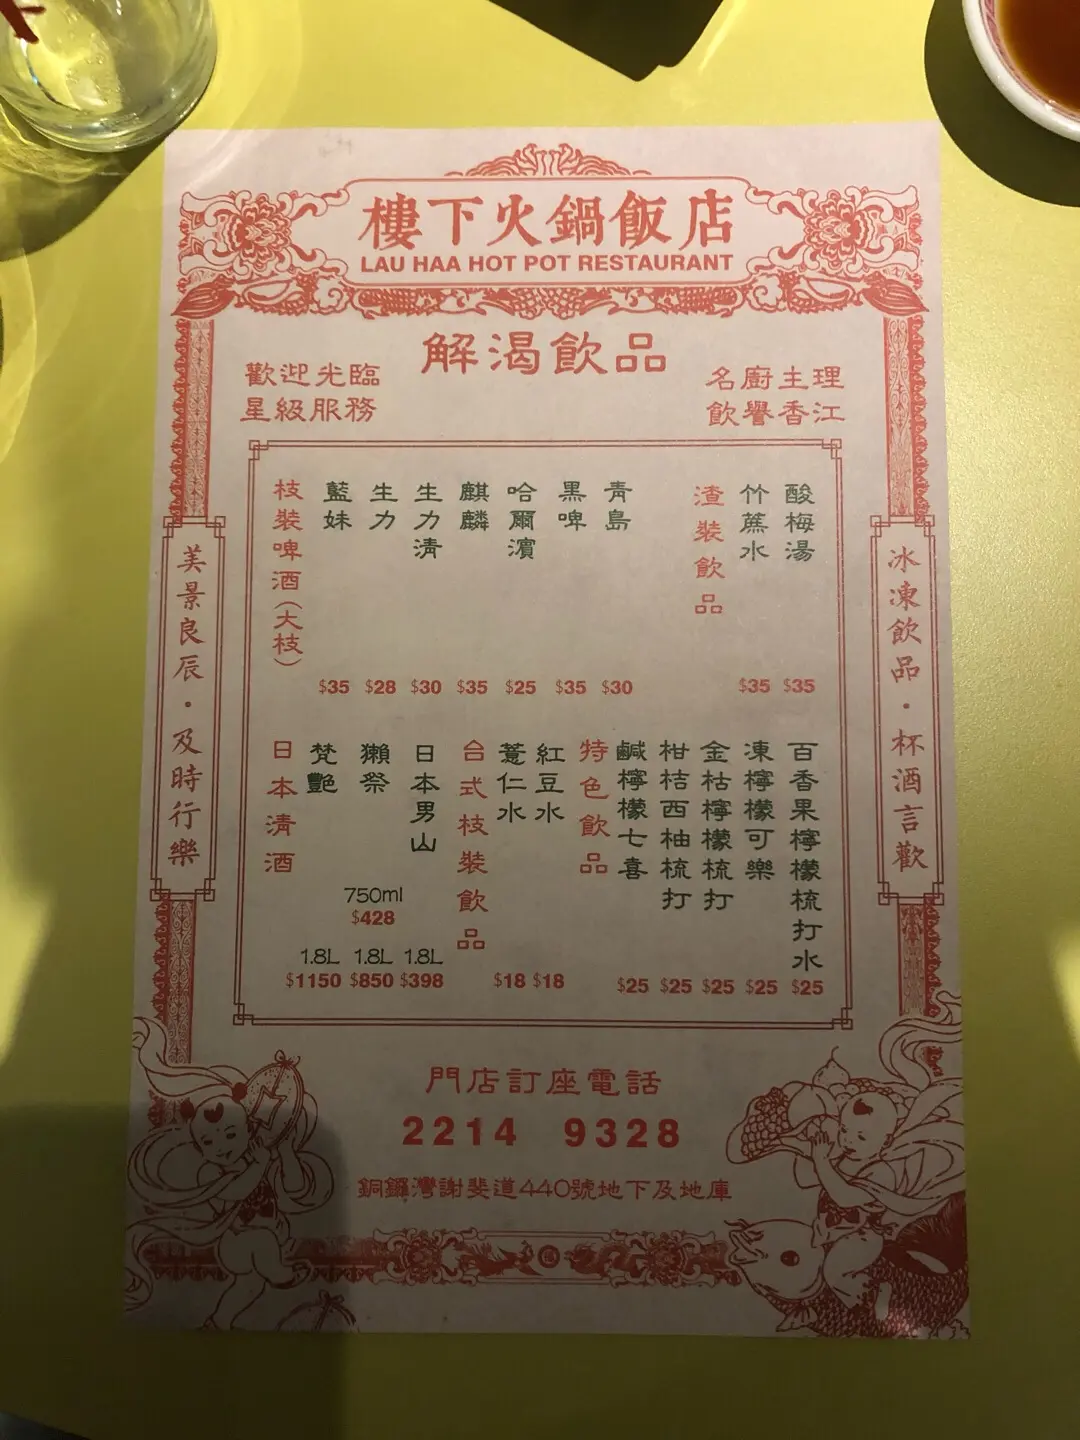 樓下火鍋飯店
LAU HAA HOT POT RESTAURANT
解渴飲品
歡迎光臨
星級服務
名廚主理
飲譽香江
冰凍飲品・杯酒言歡
美景良辰・及時行樂
酸梅湯
$35
竹蔗水
$35
渣裝飲品
青島
$30
黑啤
$35
哈爾濱
$25
麒麟
$35
生力清
$30
生力
$28
藍妹
$35
枝裝啤酒(大枝)
百香果檸檬梳打水
$25
凍檸檬可樂
$25
金枯檸檬梳打
$25
柑桔西柚梳打
$25
鹹檸檬七喜
$25
特色飲品
紅豆水
$18
薏仁水
$18
台式枝裝飲品
日本男山
1.8L
$398
獺祭
750ml
$428
1.8L
$850
梵艷
1.8L
$1150
日本清酒
門店訂座電話
2214 9328
銅鑼灣謝斐道440號地下及地庫